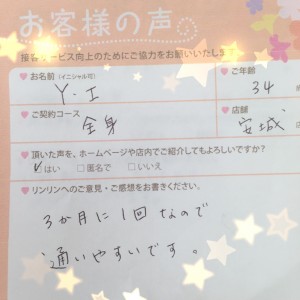 お客様の声
接客サービス向上のためにご協力をお願いいたします
♥お名前(イニシャル可)
Y.I
♥ご年齢
34
♥ご契約コース
全身
♥店舗
安城
♥頂いた声を、ホームページや店内でご紹介してもよろしいですか?
はい 匿名で いいえ
♥リンリンへのご意見・ご感想をお書きください。
3か月に1回なので
通いやすいです。